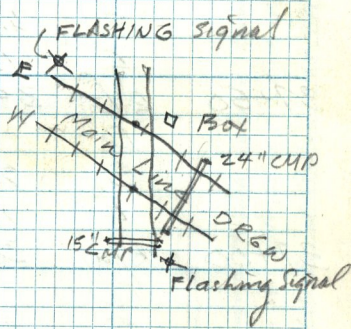 FLASHING Signal
E
Box
W
Main Line DRGW
24" CMP
15" CMP
Flashing Signal